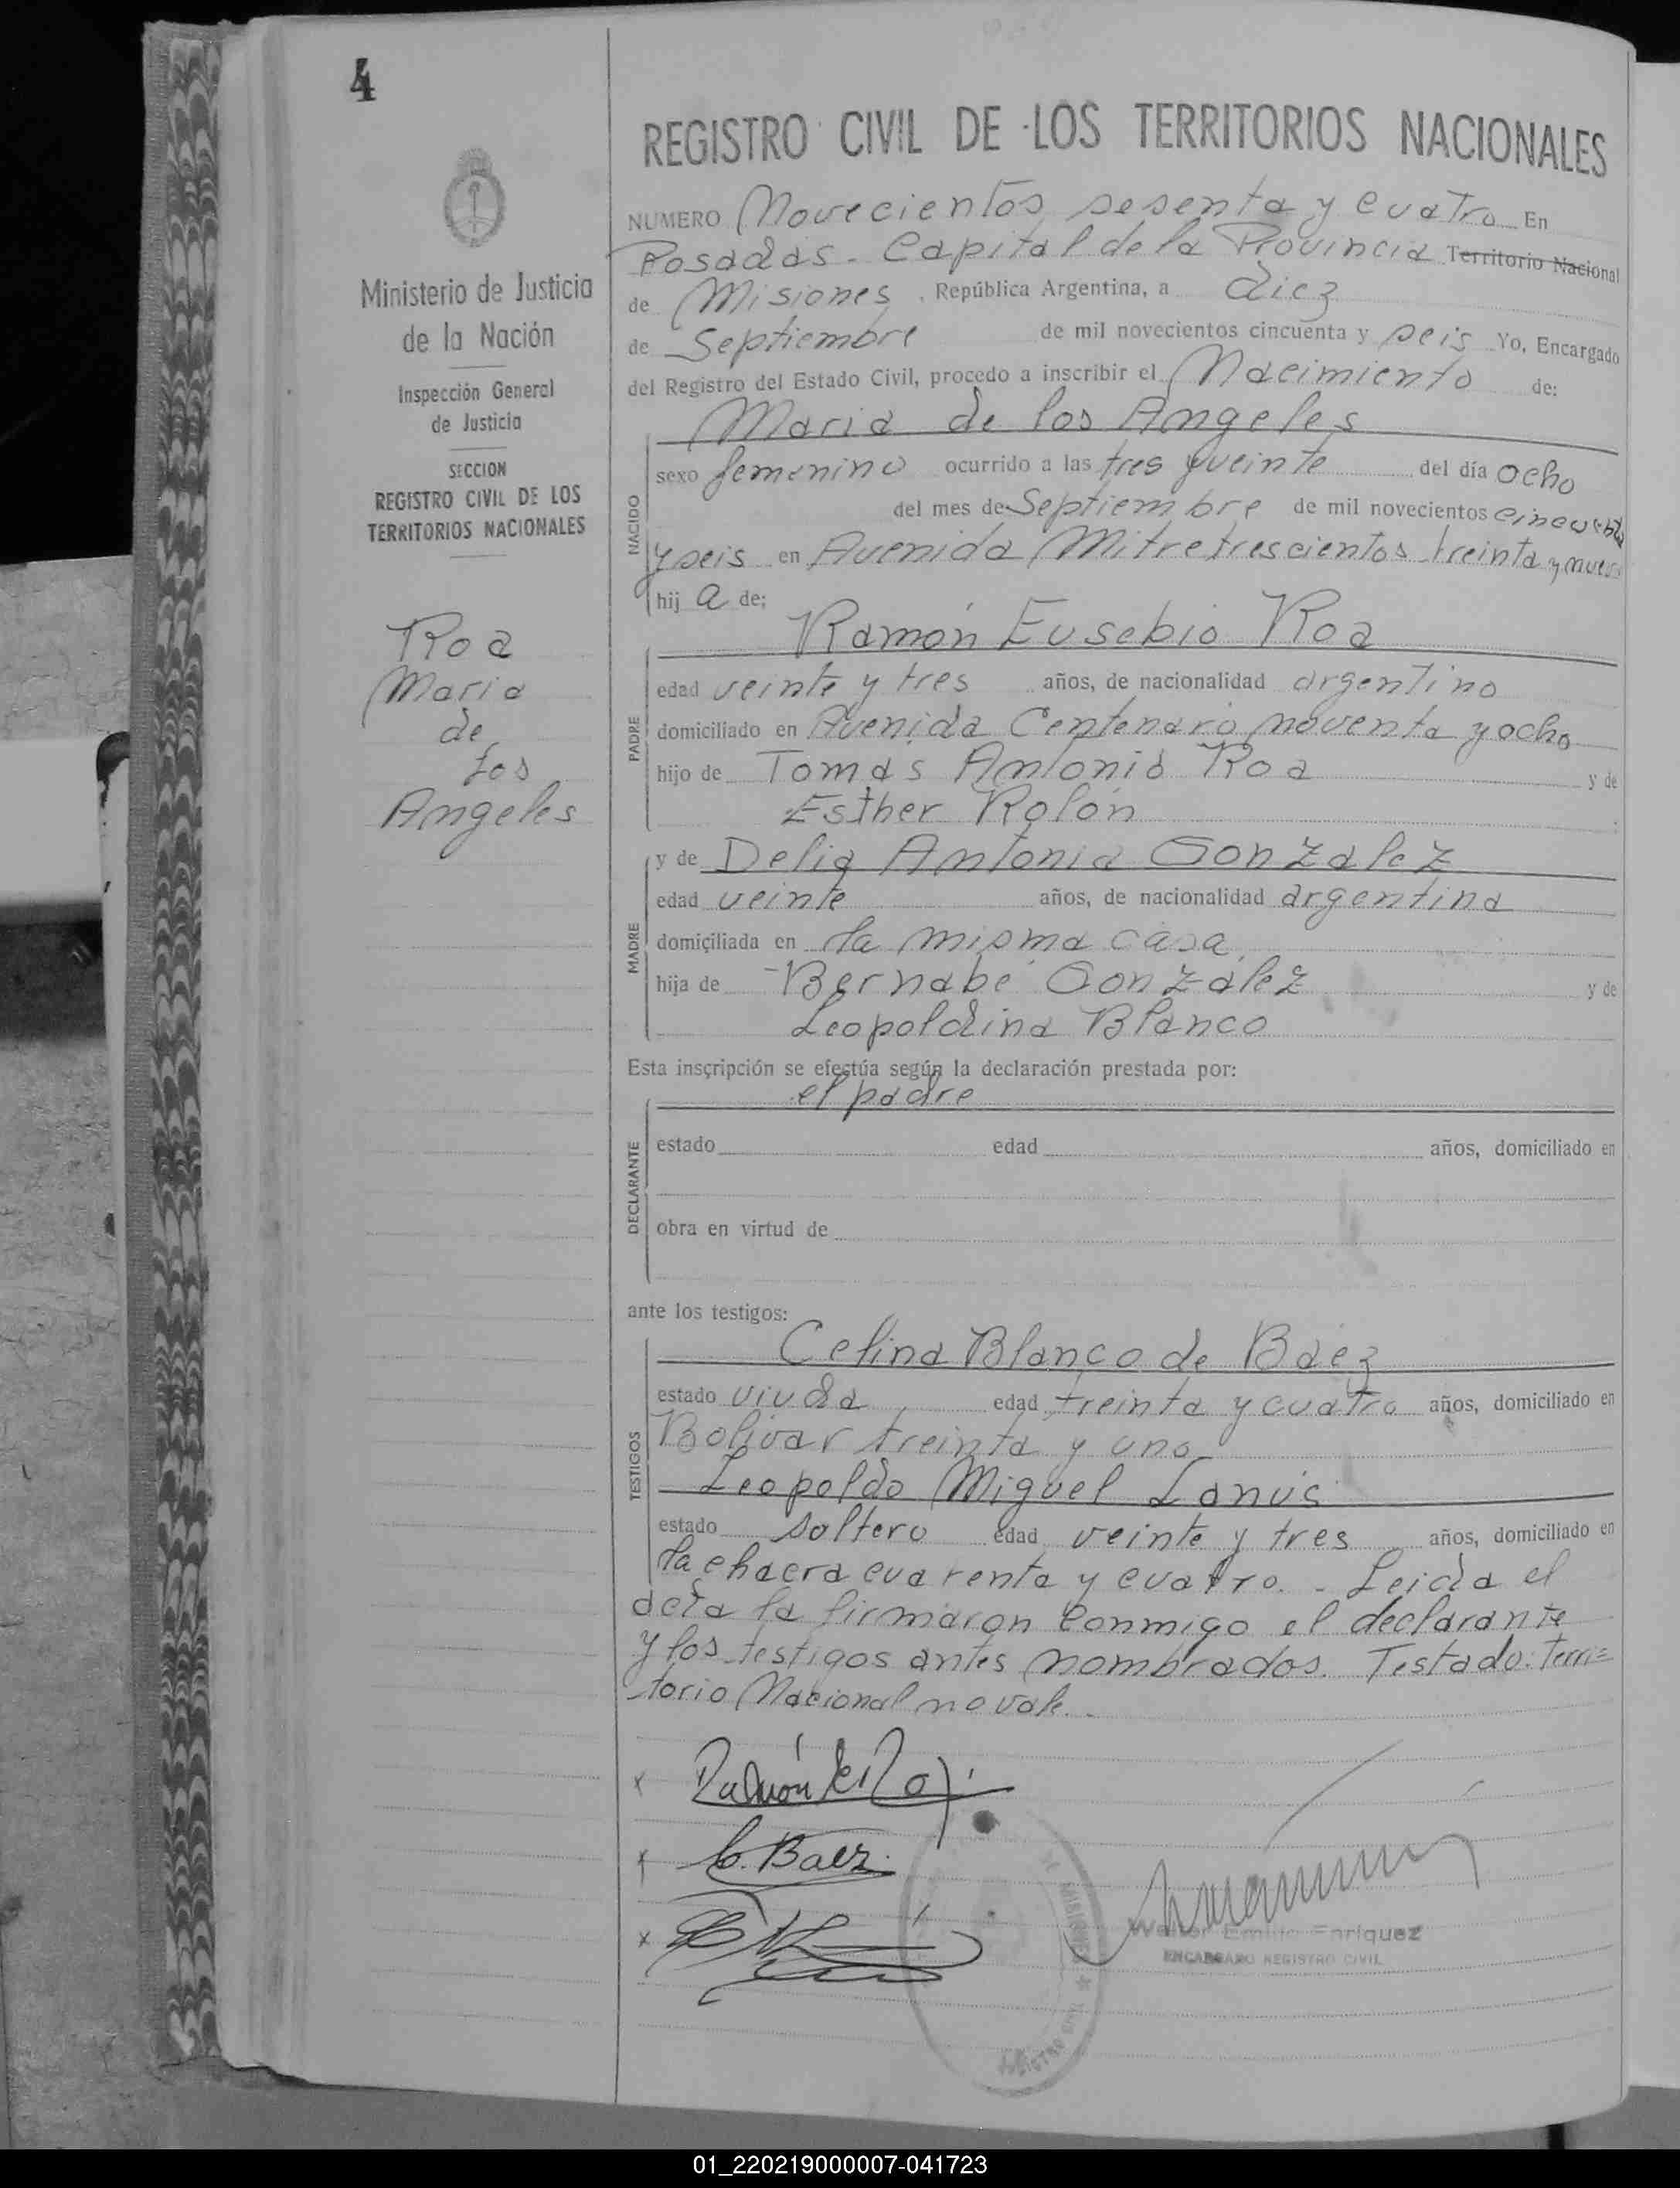 4
Ministerio de Justicia
de la Nación
Inspección General
de Justicia
SECCION
REGISTRO CIVIL DE LOS
TERRITORIOS NACIONALES
Roa
Maria
de
Los
Angeles
REGISTRO CIVIL DE LOS TERRITORIOS NACIONALES
NUMERO Novecientos sesenta y cuatro En
Posadas. Capital de la Provincia Territorio Nacional
de Misiones, República Argentina, a diez
de Septiembre de mil novecientos cincuenta y seis Yo, Encargado
del Registro del Estado Civil, procedo a inscribir el Nacimiento de:
Maria de los Angeles
NACIDO
sexo femenino ocurrido a las tres y veinte del día ocho
del mes de Septiembre de mil novecientos cincuenta
y seis en Avenida Mitre trescientos treinta y nueve
hij a de;
Ramón Eusebio Roa
PADRE
edad veinte y tres años, de nacionalidad argentino
domiciliado en Avenida Centenario noventa y ocho
hijo de Tomas Antonio Roa y de
Esther Rolón
MADRE
y de Delia Antonia Gonzalez
edad veinte años, de nacionalidad argentina
domiciliada en la misma casa
hija de Bernabé González y de
Leopoldina Blanco
Esta inscripción se efectúa según la declaración prestada por:
el padre
DECLARANTE
estado edad años, domiciliado en
obra en virtud de
ante los testigos:
Celina Blanco de Báez
TESTIGOS
estado viuda edad treinta y cuatro años, domiciliado en
Bolivar treinta y uno
Leopoldo Miguel Lanús
estado soltero edad veinte y tres años, domiciliado en
la chacra cuarenta y cuatro. - Leida el
acta la firmaron conmigo el declarante
y los testigos antes nombrados. Testado: Terri=
torio Nacional no vale. -
x Ramón
x C. Baez
x
MISIONES
REGISTRO CIVIL
Enriquez
ENCARGADO REGISTRO CIVIL
01_220219000007-041723